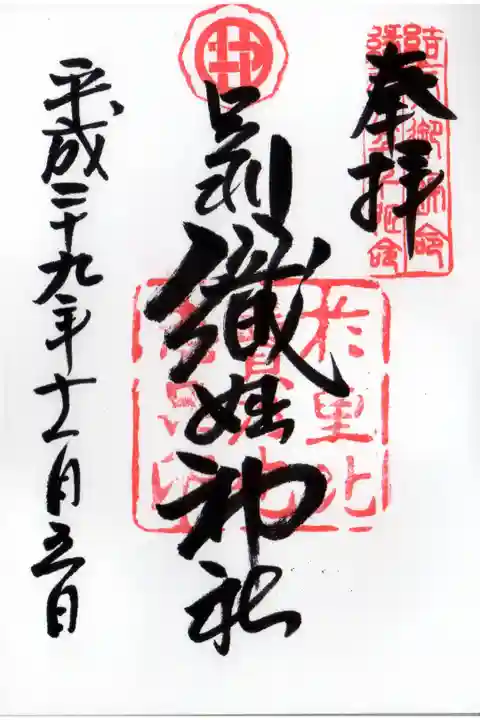 奉拝
足利織姫神社
於里比
平成二十九年十一月五日